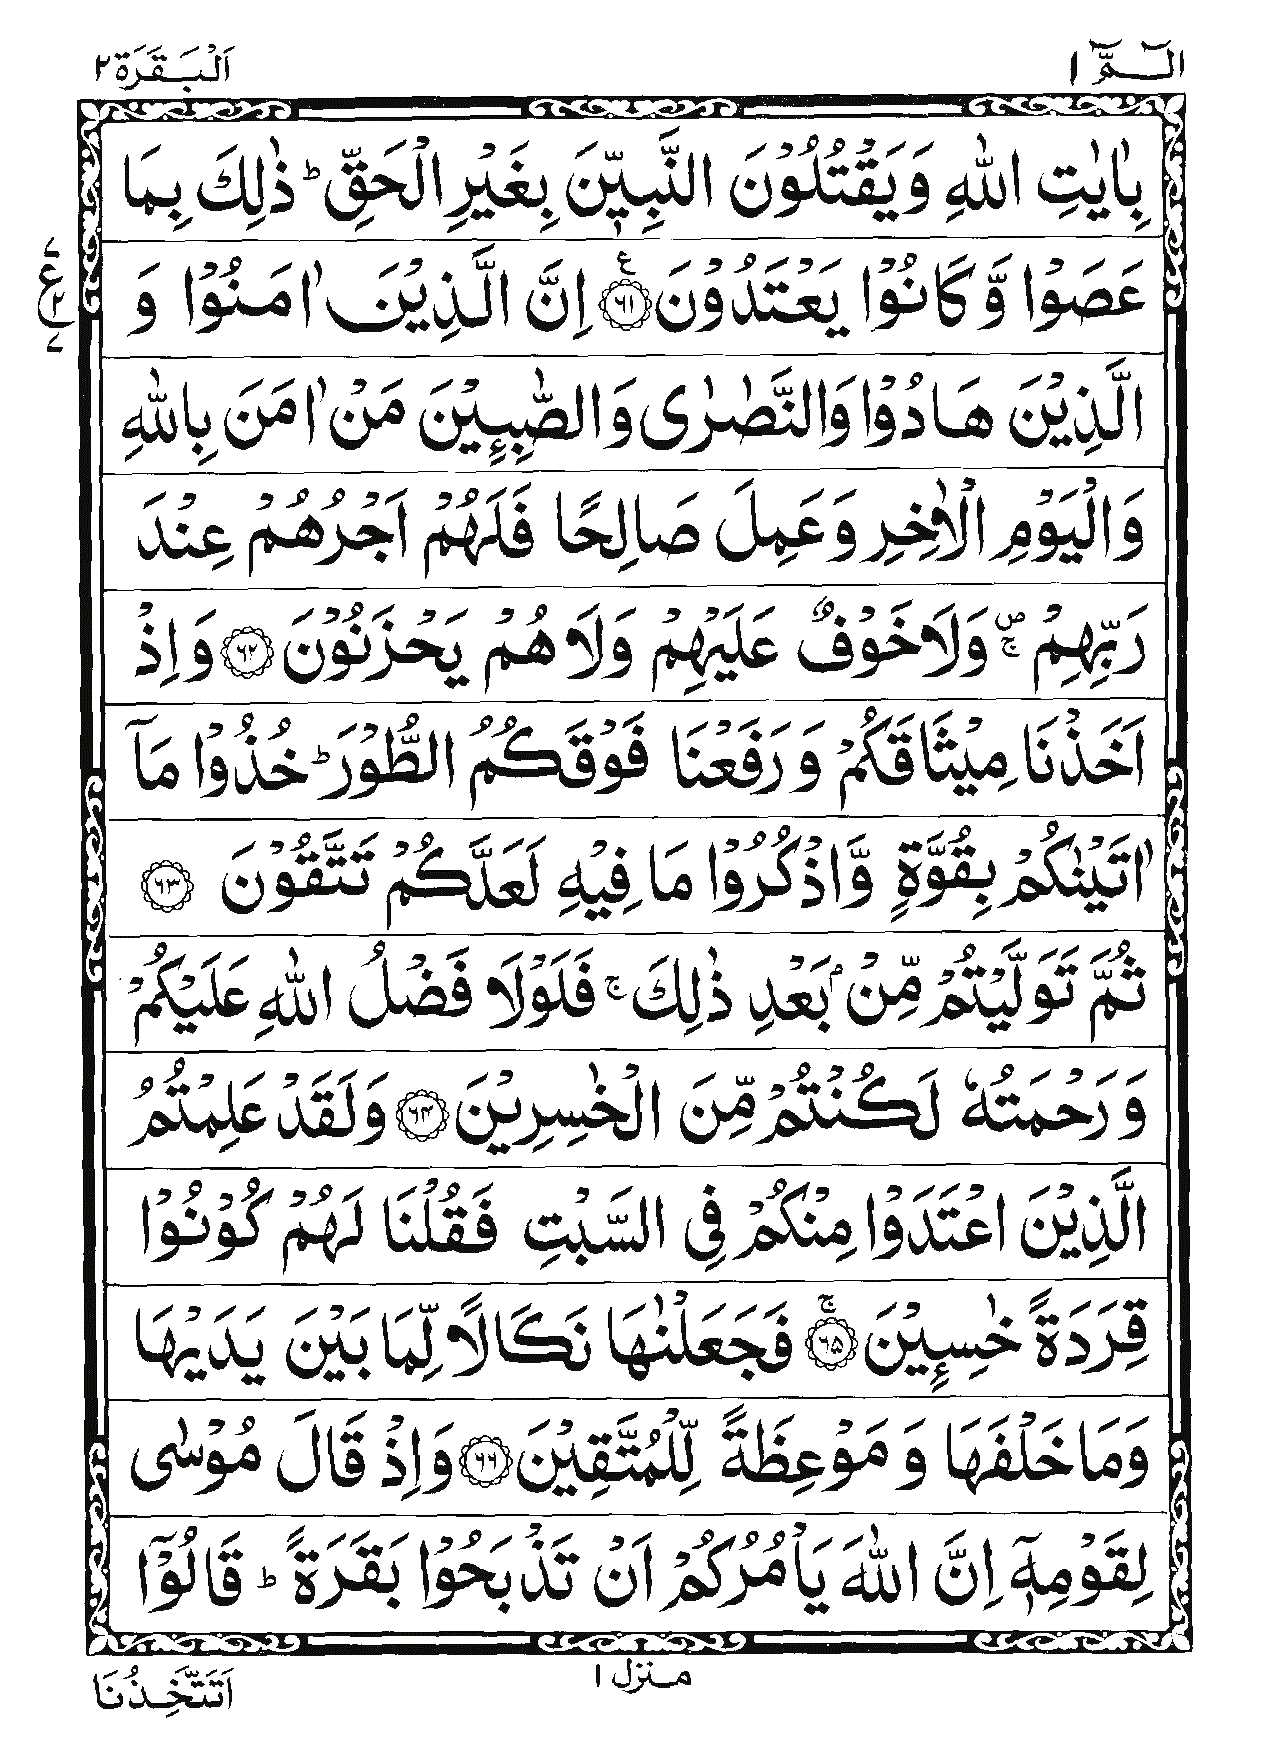 الٓـمّٓ ١
اَلْبَقَرَة ٢
بِاٰيٰتِ اللّٰهِ وَيَقْتُلُوْنَ النَّبِيّٖنَ بِغَيْرِ الْحَقِّ ؕ ذٰلِكَ بِمَا
عَصَوْا وَّكَانُوْا يَعْتَدُوْنَ ﴿٦١﴾ ع اِنَّ الَّذِيْنَ اٰمَنُوْا وَ
ع
الَّذِيْنَ هَادُوْا وَالنَّصٰرٰى وَالصّٰبِـِٕيْنَ مَنْ اٰمَنَ بِاللّٰهِ
وَالْيَوْمِ الْاٰخِرِ وَعَمِلَ صَالِحًا فَلَهُمْ اَجْرُهُمْ عِنْدَ
رَبِّهِمْ ۖۚ وَلَا خَوْفٌ عَلَيْهِمْ وَلَا هُمْ يَحْزَنُوْنَ ﴿٦٢﴾ وَاِذْ
اَخَذْنَا مِيْثَاقَكُمْ وَرَفَعْنَا فَوْقَكُمُ الطُّوْرَ ؕ خُذُوْا مَآ
اٰتَيْنٰكُمْ بِقُوَّةٍ وَّاذْكُرُوْا مَا فِيْهِ لَعَلَّكُمْ تَتَّقُوْنَ ﴿٦٣﴾
ثُمَّ تَوَلَّيْتُمْ مِّنْۢ بَعْدِ ذٰلِكَ ۚ فَلَوْلَا فَضْلُ اللّٰهِ عَلَيْكُمْ
وَرَحْمَتُهٗ لَكُنْتُمْ مِّنَ الْخٰسِرِيْنَ ﴿٦٤﴾ وَلَقَدْ عَلِمْتُمُ
الَّذِيْنَ اعْتَدَوْا مِنْكُمْ فِى السَّبْتِ فَقُلْنَا لَهُمْ كُوْنُوْا
قِرَدَةً خٰسِـِٕيْنَ ﴿٦٥﴾ ۚ فَجَعَلْنٰهَا نَكَالًا لِّمَا بَيْنَ يَدَيْهَا
وَمَا خَلْفَهَا وَمَوْعِظَةً لِّلْمُتَّقِيْنَ ﴿٦٦﴾ وَاِذْ قَالَ مُوْسٰى
لِقَوْمِهٖٓ اِنَّ اللّٰهَ يَاْمُرُكُمْ اَنْ تَذْبَحُوْا بَقَرَةً ؕ قَالُوْٓا
منزل ١
اَتَتَّخِذُنَا